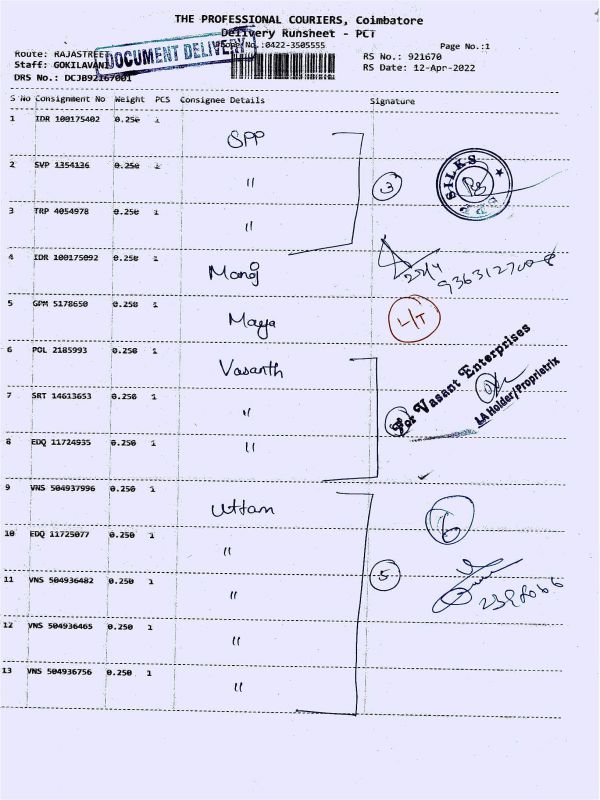 THE PROFESSIONAL COURIERS, Coimbatore
Delivery Runsheet - PCT
Phone No.:0422-3505555
Page No.:1
Route: RAJASTREET
RS No.: 921670
Staff: GOKILAVANI
RS Date: 12-Apr-2022
DRS No.: DCJB92167001
DOCUMENT DELIVERY
S No Consignment No Weight PCS Consignee Details Signature
1 IDR 100175402 0.250 1 SPP
2 SVP 1354136 0.250 1 "
3 SILKS
3 TRP 4054978 0.250 1 "
4 IDR 100175092 0.250 1 Manoj
5 GPM 5178650 0.250 1 Maya L/T
6 POL 2185993 0.250 1 Vasanth
For Vasant Enterprises
LA Holder/Proprietrix
7 SRT 14613653 0.250 1 "
8 EDQ 11724935 0.250 1 "
9 VNS 504937996 0.250 1 Uttam
10 EDQ 11725077 0.250 1 "
11 VNS 504936482 0.250 1 " 5
12 VNS 504936465 0.250 1 "
13 VNS 504936756 0.250 1 "